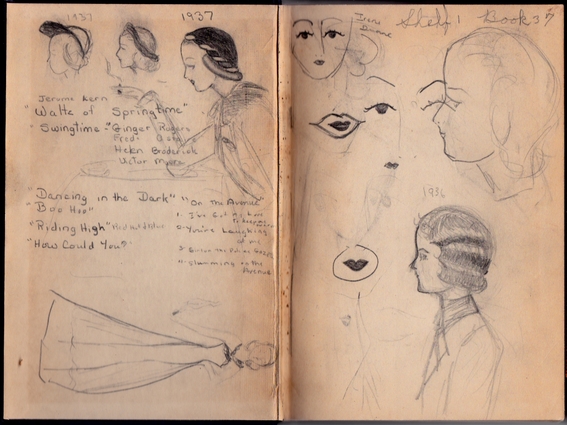 1937
1937
Jerome Kern
"Waltz of Springtime"
"Swingtime-" Ginger Rogers
Fred
Helen Broderick
Victor Moore
"Dancing in the Dark"
"Boo Hoo"
"Riding High"
"How Could You?"
"On the Avenue"
1. I've Got my love
to keep me warm
2. You're Laughing
at me
Slumming on the
Avenue
Irene
Dunne
Shelf 1 Book 37
1936